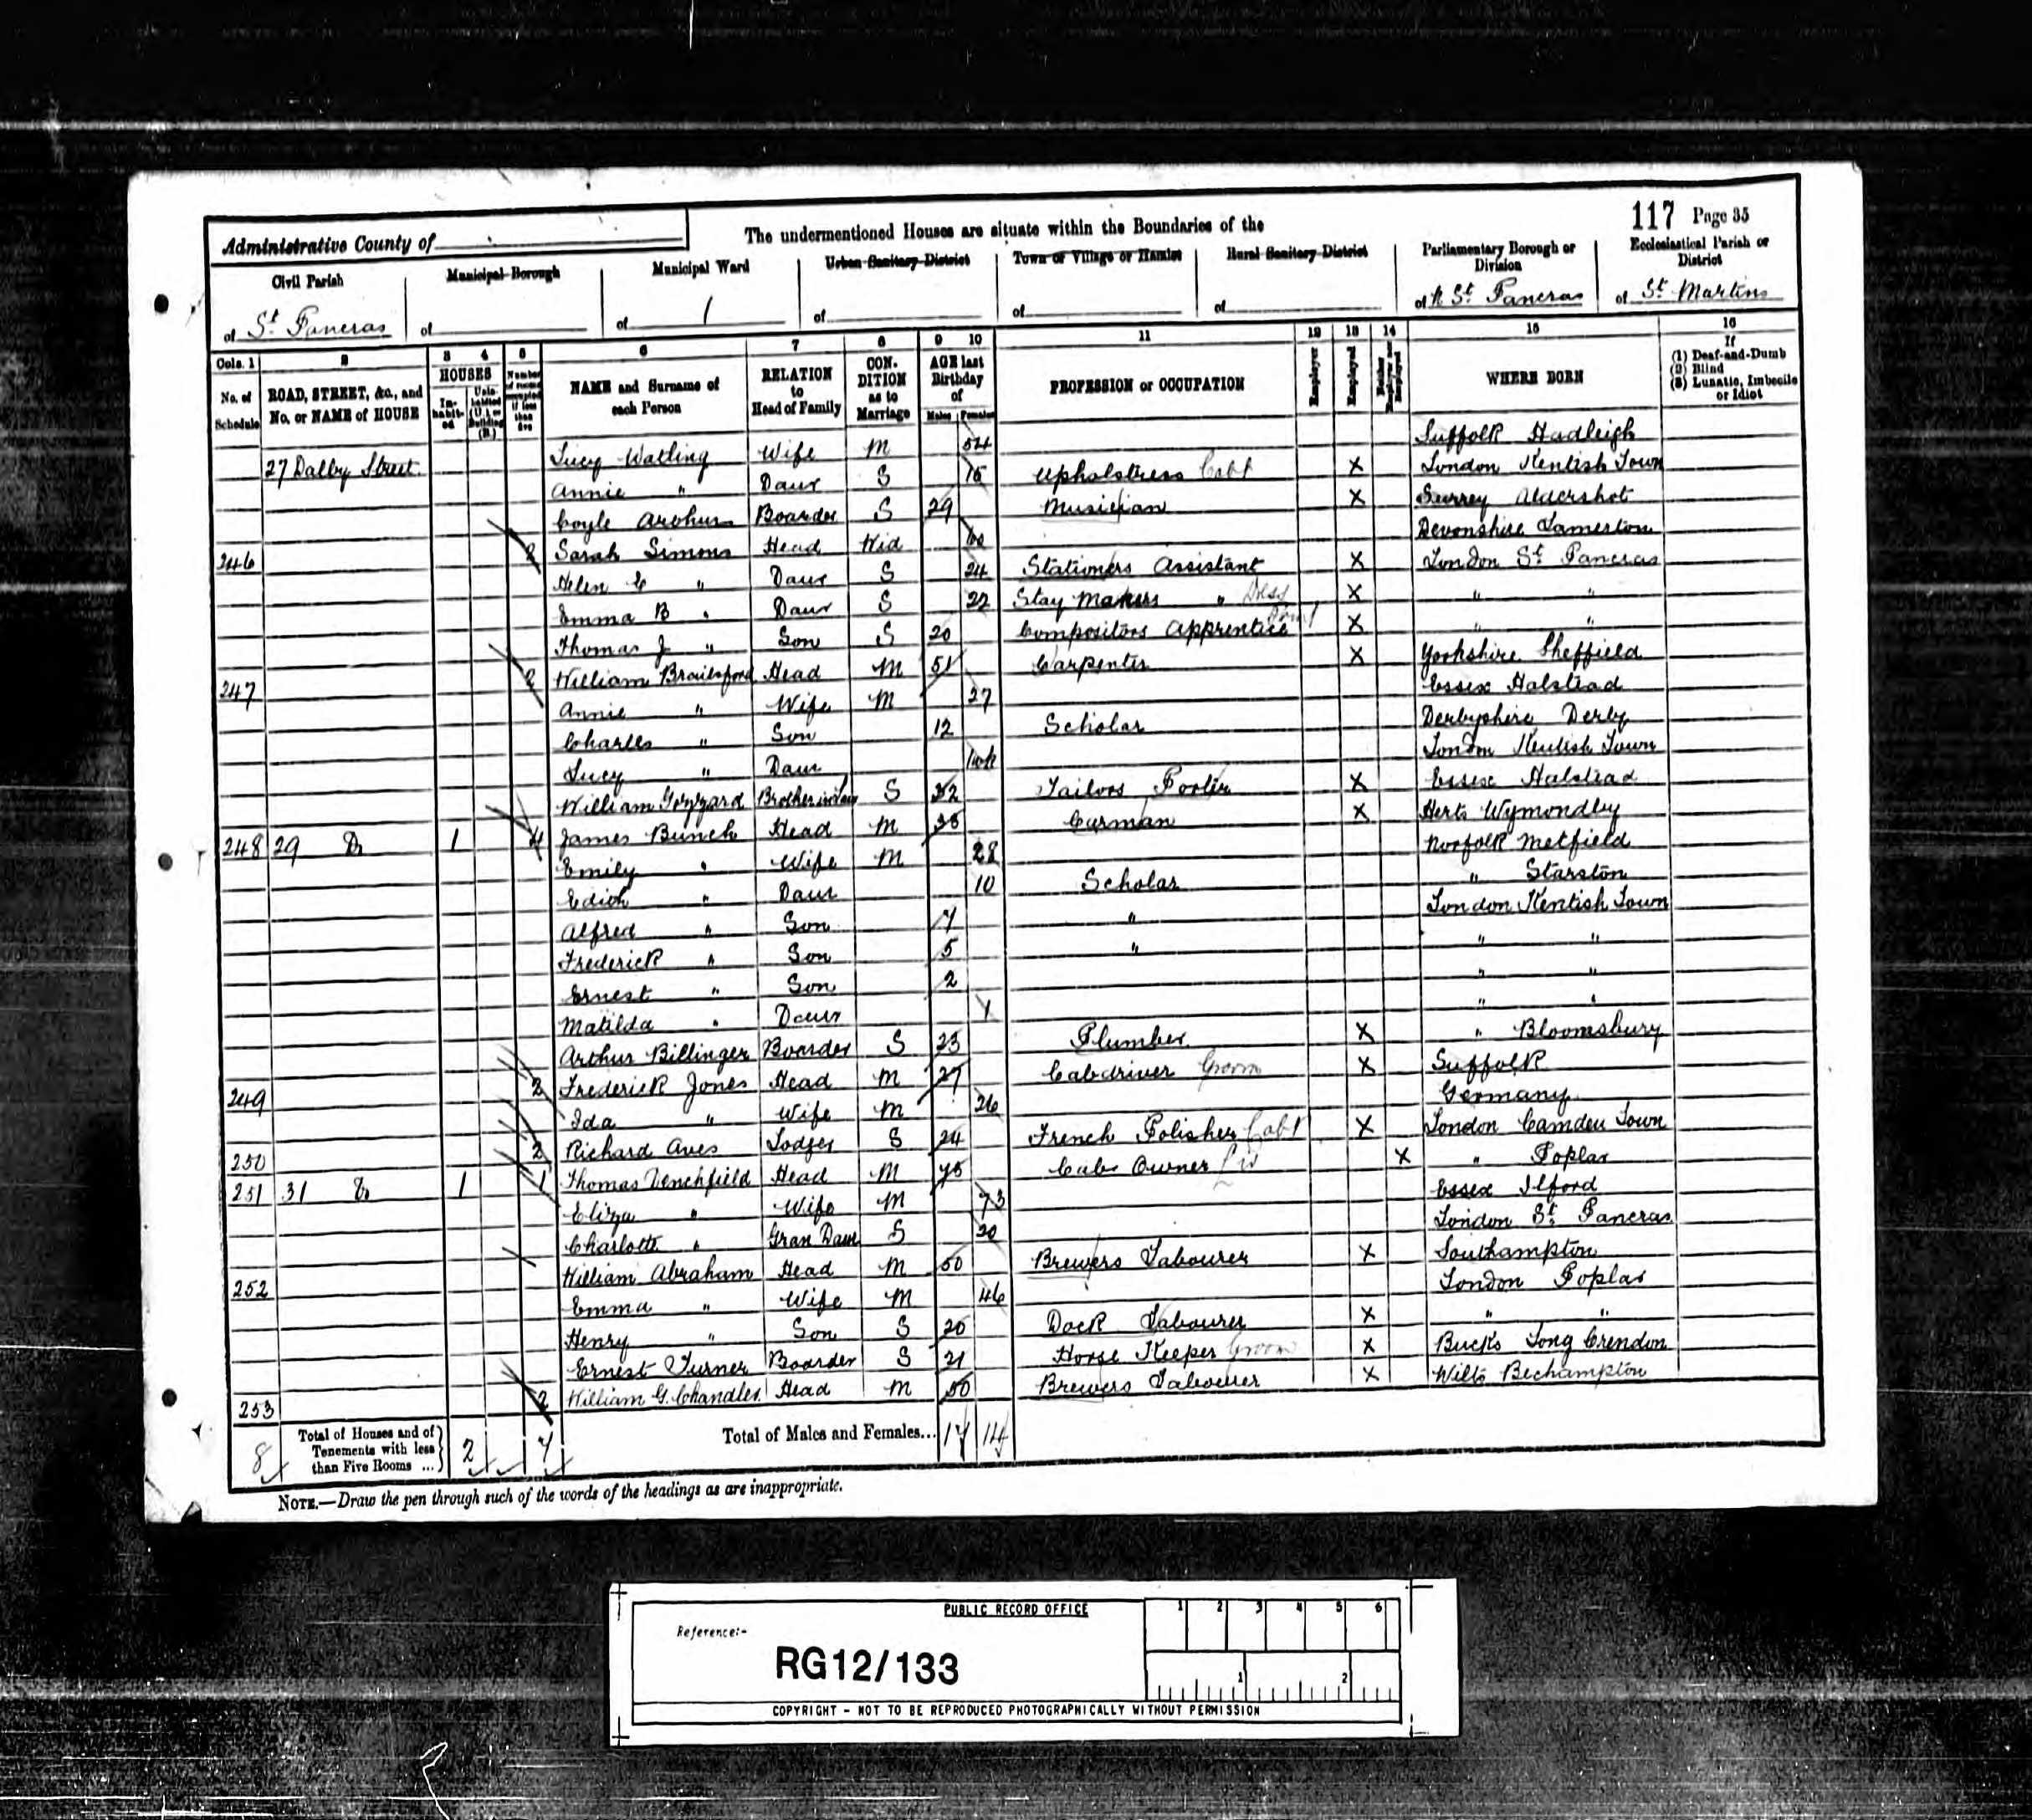 117 Page 35
Administrative County of
The undermentioned Houses are situate within the Boundaries of the
Civil Parish
of St. Pancras
Municipal Borough
of
Municipal Ward
of 1
Urban Sanitary District
of
Town or Village or Hamlet
of
Rural Sanitary District
of
Parliamentary Borough or Division
of N St. Pancras
Ecclesiastical Parish or District
of St. Martins
Cols. 1 2 3 4 5 6 7 8 9 10 11 12 13 14 15 16
No. of Schedule
ROAD, STREET, &c., and No. or NAME of HOUSE
HOUSES
Inhabited
Uninhabited (U.) or Building (B.)
Number of rooms occupied if less than five
NAME and Surname of each Person
RELATION to Head of Family
CONDITION as to Marriage
AGE last Birthday of
Males Females
PROFESSION or OCCUPATION
Employer
Employed
Neither Employer nor Employed
WHERE BORN
If
(1) Deaf-and-Dumb
(2) Blind
(3) Lunatic, Imbecile or Idiot
27 Dalby Street Lucy Watling Wife M 54 Suffolk Hadleigh
Annie " Daur S Upholstress Cabt X London Kentish Town
Coyle Arthur Boarder S 29 Musician X Surrey Aldershot
246 2 Sarah Simms Head Wid Devonshire Lamerton
Helen E " Daur S 24 Stationers Assistant X London St. Pancras
Emma B " Daur S 22 Stay Makers " X " "
Thomas J " Son S 20 Compositors Apprentice X " "
247 2 William Brailsford Head M 51 Carpenter X Yorkshire Sheffield
Annie " Wife M 27 Essex Halstead
Charles " Son 12 Scholar Derbyshire Derby
Lucy " Daur London Kentish Town
William Brother in law S Tailors Porter X Essex Halstead
248 29 Do 1 4 James Bunch Head M Carman X Herts Wymondley
Emily " Wife M 28 Norfolk Metfield
Edith " Daur 10 Scholar " Starston
Alfred " Son 7 " London Kentish Town
Frederick " Son 5 " " "
Ernest " Son 2 " "
Matilda " Daur 1 " "
Arthur Billinger Boarder S 23 Plumber X " Bloomsbury
249 2 Frederick Jones Head M 27 Cabdriver Groom X Suffolk
Ida " Wife M 26 Germany
250 2 Richard Aves Lodger S 24 French Polisher Cabt X London Camden Town
251 31 Do 1 1 Thomas Venchfield Head M 75 Cab Owner X " Poplar
Eliza " Wife M 73 Essex Ilford
Charlotte " Gran Daur S 20 London St. Pancras
252 William Abraham Head M 50 Brewers Labourer X Southampton
Emma " Wife M 46 London Poplar
Henry " Son S 20 Dock Labourer X " "
Ernest Turner Boarder S 21 Horse Keeper Groom X Bucks Long Crendon
253 2 William G. Chandler Head M 50 Brewers Labourer X Wilts Bechampton
8 Total of Houses and of Tenements with less than Five Rooms ... 2 7 Total of Males and Females... 17 14
NOTE.—Draw the pen through such of the words of the headings as are inappropriate.
PUBLIC RECORD OFFICE
1 2 3 4 5 6
Reference:-
RG12/133
1 2
COPYRIGHT - NOT TO BE REPRODUCED PHOTOGRAPHICALLY WITHOUT PERMISSION